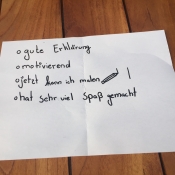 o gute Erklärung
o motivierend
o jetzt kann ich malen
o hat sehr viel Spaß gemacht